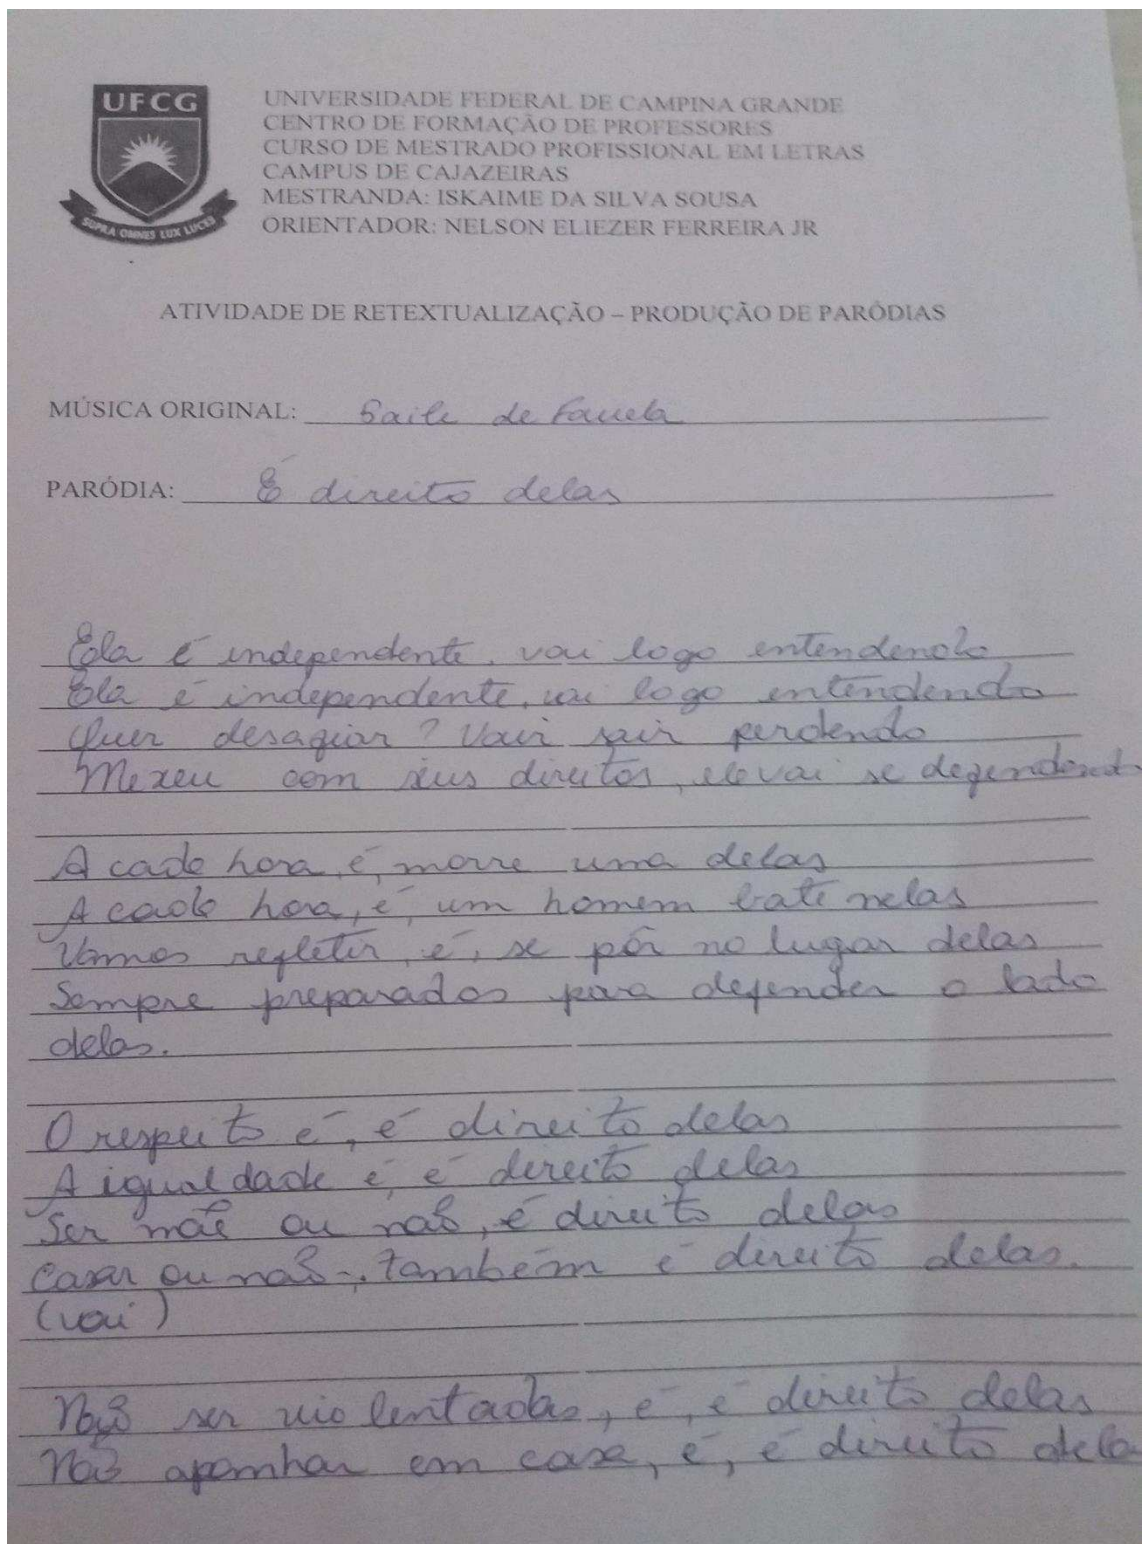 UFCG
SUPRA OMNES LUX LUCES
UNIVERSIDADE FEDERAL DE CAMPINA GRANDE
CENTRO DE FORMAÇÃO DE PROFESSORES
CURSO DE MESTRADO PROFISSIONAL EM LETRAS
CAMPUS DE CAJAZEIRAS
MESTRANDA: ISKAIME DA SILVA SOUSA
ORIENTADOR: NELSON ELIEZER FERREIRA JR
ATIVIDADE DE RETEXTUALIZAÇÃO – PRODUÇÃO DE PARÓDIAS
MÚSICA ORIGINAL: Baile de Favela
PARÓDIA: É direito delas
Ela é independente, vai logo entendendo
Ela é independente, vai logo entendendo
Quer desafiar? Vair sair perdendo
Mexeu com seus direitos, ele vai se defendendo
A cada hora, é, morre uma delas
A cada hora, é, um homem bate nelas
Vamos refletir, é, se pôr no lugar delas
Sempre preparados para defender o lado
delas.
O respeito é, é direito delas
A igualdade é, é direito delas
Ser mãe ou não, é direito delas
Casar ou não, também é direito delas.
(vai)
Não ser violentadas, é, é direito delas
Não apanhar em casa, é, é direito dela